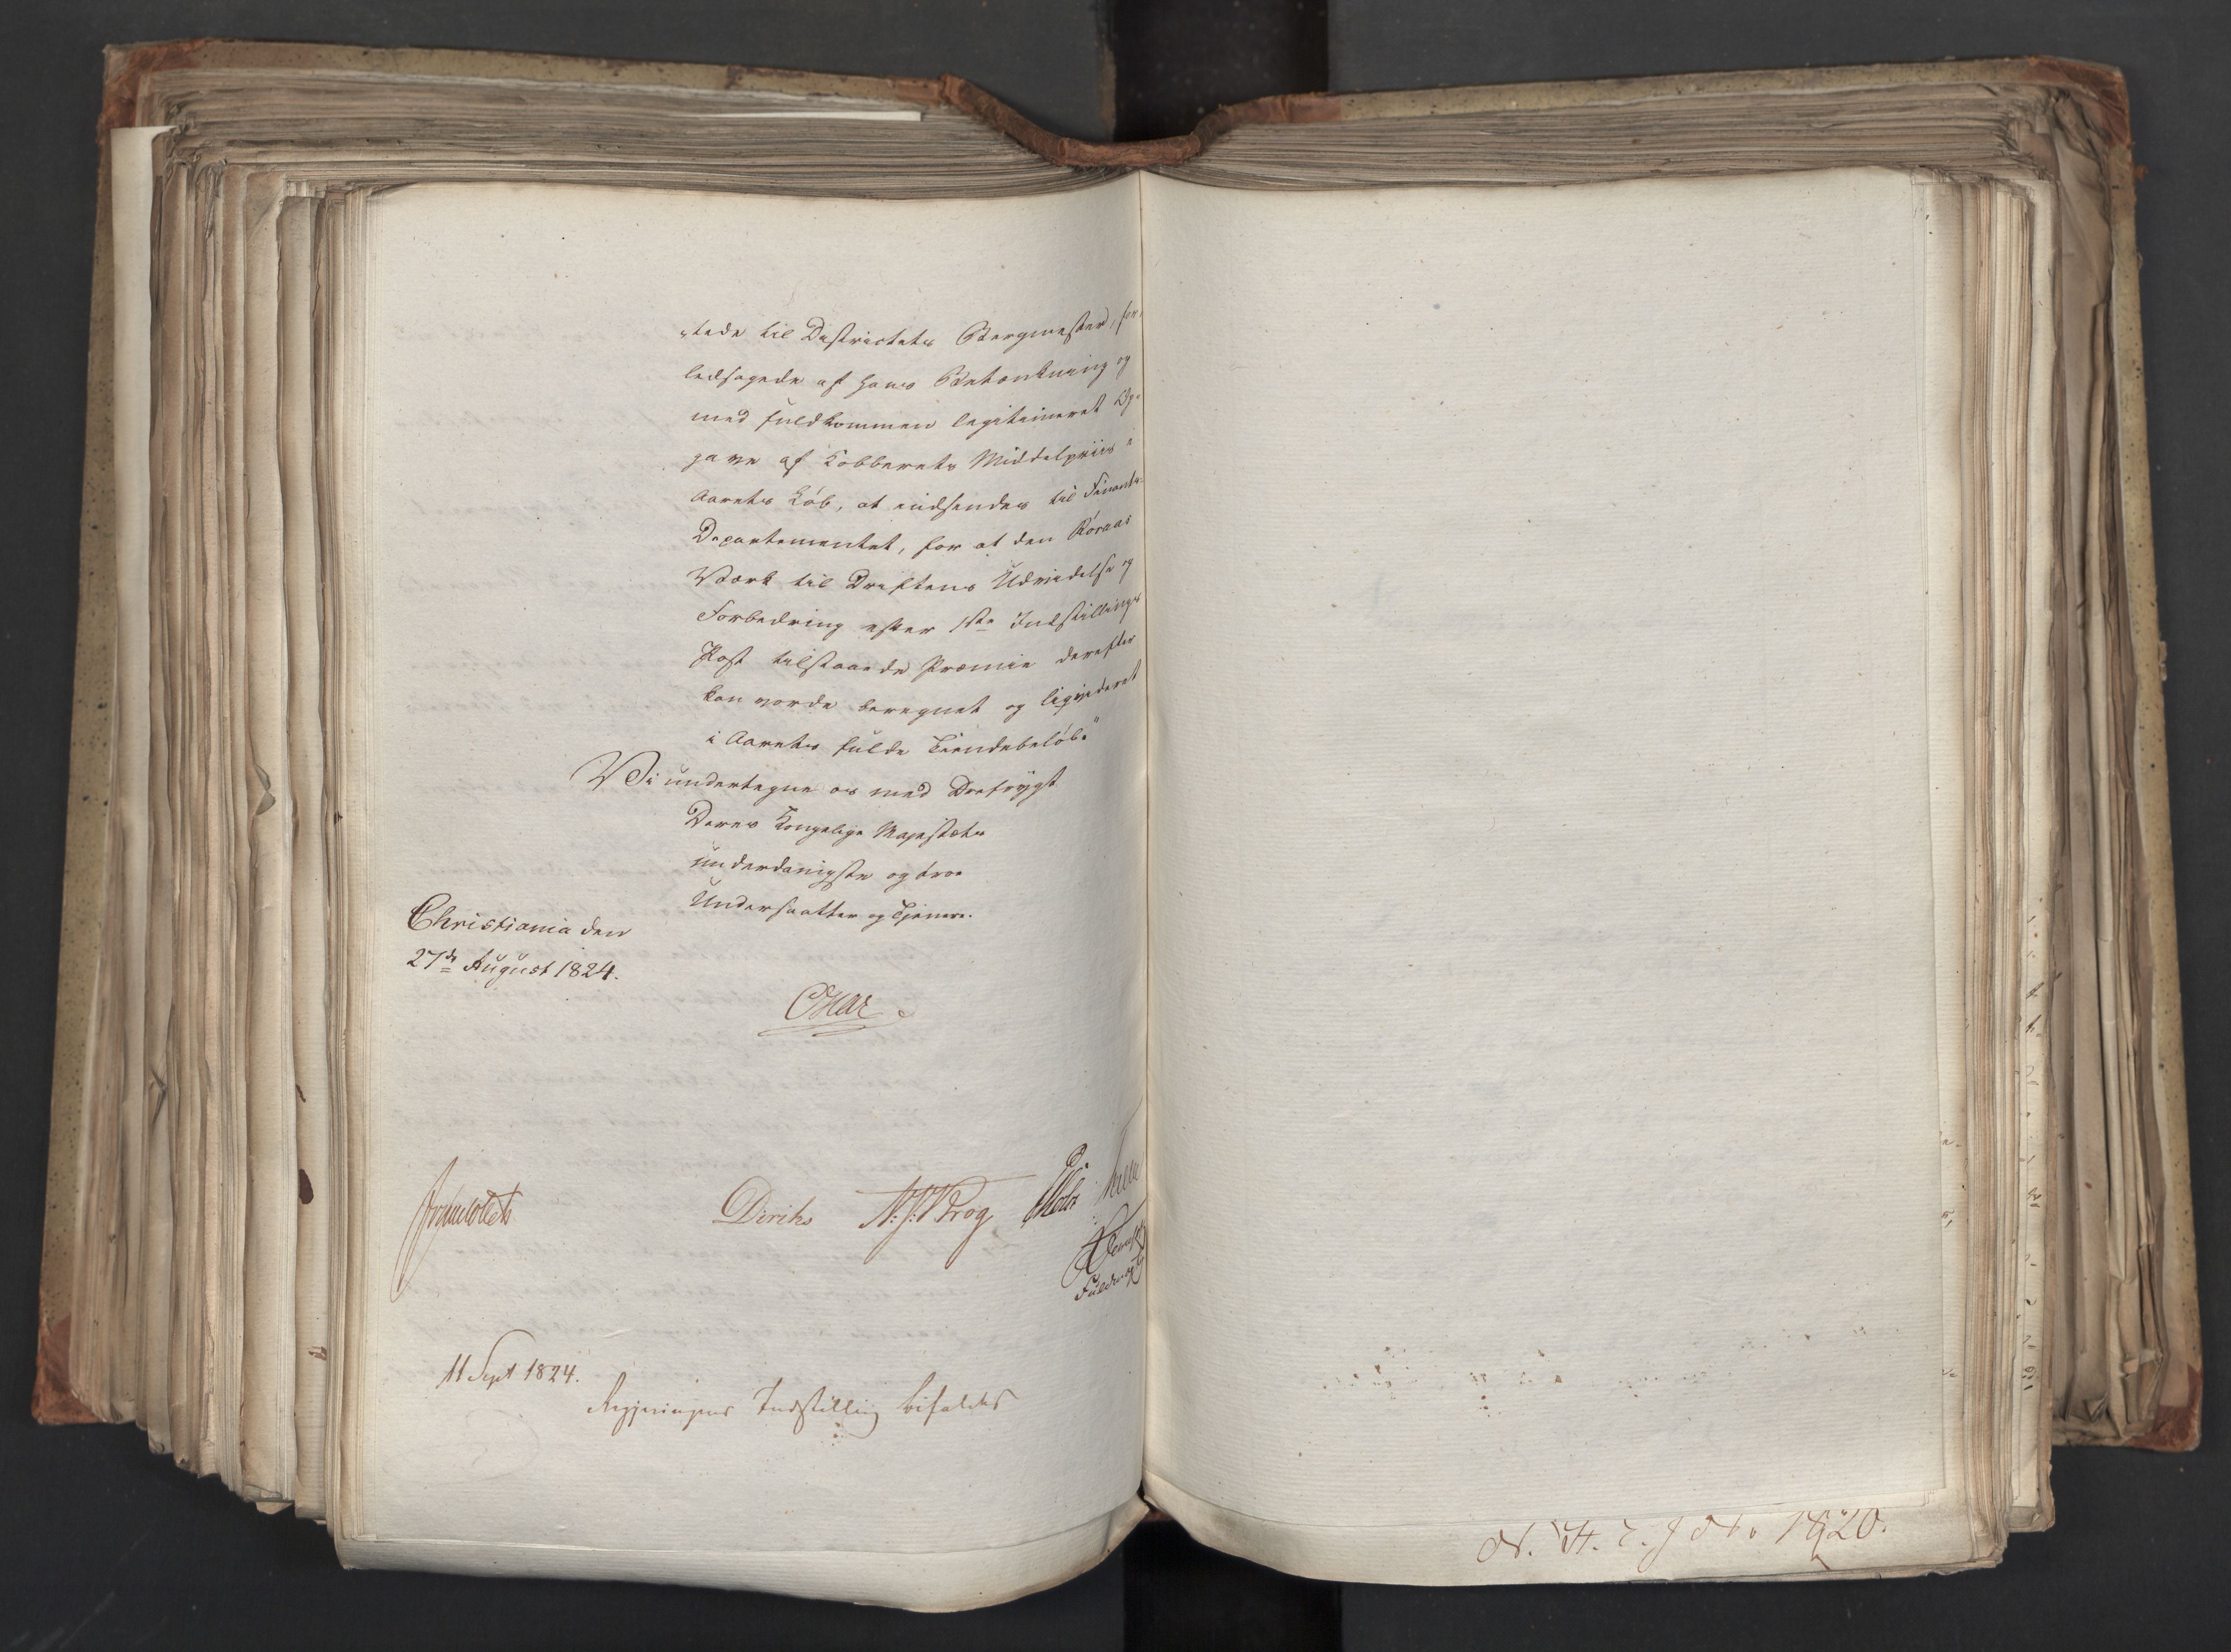 „tede til Districtets Bergmester, for„
ledsagede af hans Betænkning og
med fuldkommen legitimeret Op„
gave af Kobberets Middelpriis i
Aarets Løb, at indsendes til Finants-
Departementet, for at den Røraas
Værk til Driftens Udvidelse og
Forbedring efter 1ste Indstillings
Post tilstaaede Præmie derefter
kan vorde beregnet og liqvideret
i Aarets fulde Tiendebeløb."
Vi undertegne os med Dybfrygt
Deres Kongelige Majestæts
underdanigste og troe
Undersaatter og Tjenere.
Christiania den
27de August 1824.
Diriks
Krog
Fuldmægtig
11 Sept 1824.
Regjeringens Indstilling bifaldes
1820.